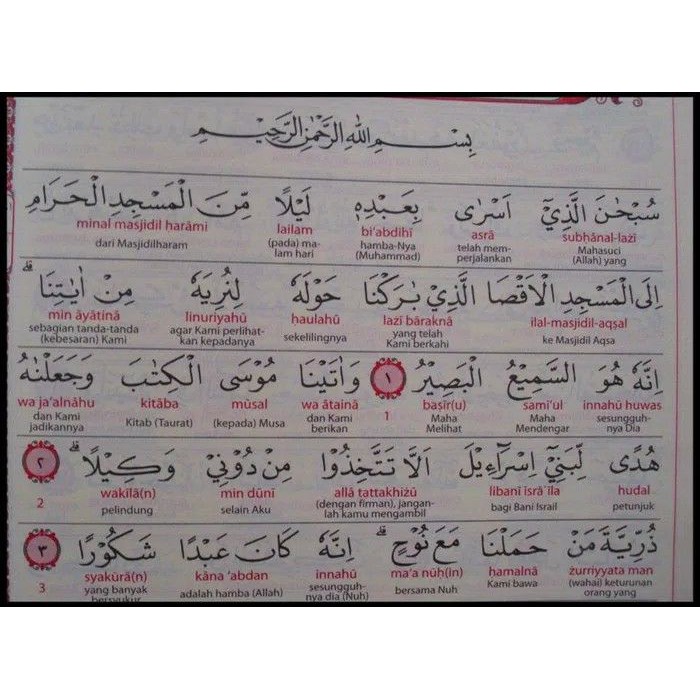 بِسْمِ اللهِ الرَّحْمٰنِ الرَّحِيْمِ
سُبْحٰنَ الَّذِيْٓ اَسْرٰى بِعَبْدِهٖ لَيْلًا مِّنَ الْمَسْجِدِ الْحَرَامِ
subḥānal-lażī asrā bi'abdihī lailam minal masjidil ḥarāmi
Mahasuci (Allah) yang telah mem- perjalankan hamba-Nya (Muhammad) (pada) ma- lam hari dari Masjidilharam
اِلَى الْمَسْجِدِ الْاَقْصَا الَّذِيْ بٰرَكْنَا حَوْلَهٗ لِنُرِيَهٗ مِنْ اٰيٰتِنَاۗ
ilal-masjidil-aqṣal lażī bāraknā ḥaulahū linuriyahū min āyātinā
ke Masjidil Aqsa yang telah Kami berkahi sekelilingnya agar Kami perlihat- kan kepadanya sebagian tanda-tanda (kebesaran) Kami
اِنَّهٗ هُوَ السَّمِيْعُ الْبَصِيْرُ ١ وَاٰتَيْنَا مُوْسَى الْكِتٰبَ وَجَعَلْنٰهُ
innahū huwas samī'ul baṣīr(u) 1 wa ātainā mūsal kitāba wa ja'alnāhu
sesungguh- nya Dia Maha Mendengar Maha Melihat dan Kami berikan (kepada) Musa Kitab (Taurat) dan Kami jadikannya
هُدًى لِّبَنِيْٓ اِسْرَاۤءِيْلَ اَلَّا تَتَّخِذُوْا مِنْ دُوْنِيْ وَكِيْلًاۗ ٢
hudal libanī isrā'īla allā tattakhiżū min dūnī wakīlā(n) 2
petunjuk bagi Bani Israil (dengan firman), jangan- lah kamu mengambil selain Aku pelindung
ذُرِّيَّةَ مَنْ حَمَلْنَا مَعَ نُوْحٍۗ اِنَّهٗ كَانَ عَبْدًا شَكُوْرًا ٣
żurriyyata man ḥamalnā ma'a nūḥ(in) innahū kāna 'abdan syakūrā(n) 3
(wahai) keturunan orang yang Kami bawa bersama Nuh sesungguh- nya dia (Nuh) adalah hamba (Allah) yang banyak bersyukur